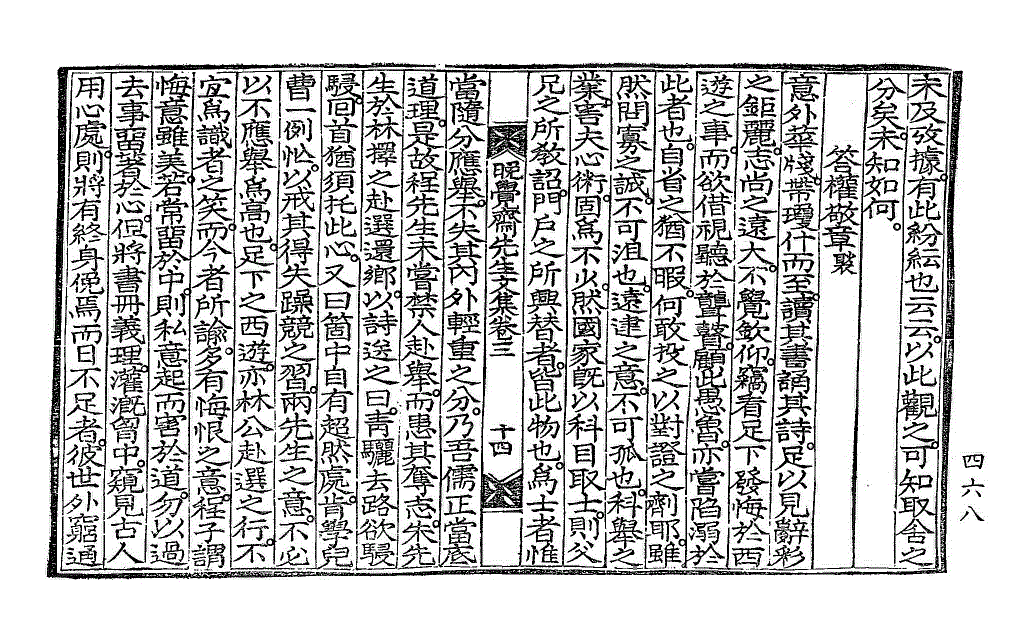 未及攷據。有此紛紜也云云。以此觀之。可知取舍之
分矣。未知如何。
答權敬章褧
意外華牋。帶瓊什而至。讀其書誦其詩。足以見辭彩
之鉅麗。志尚之遠大。不覺欽仰。竊看足下發悔於西
遊之事。而欲借視聽於聾瞽。顧此愚魯。亦嘗陷溺於
此者也。自省之猶不暇。何敢投之以對證之劑耶。雖
然問寡之誠。不可沮也。遠逮之意。不可孤也。科舉之
業。害夫心術。固爲不少。然國家旣以科目取士。則父
兄之所敎詔。門戶之所興替者。皆此物也。爲士者惟
晩覺齋先生文集卷三
十四
當隨分應舉。不失其內外輕重之分。乃吾儒正當底
道理。是故程先生未嘗禁人赴舉。而患其奪志。朱先
生於林擇之赴選還鄉。以詩送之曰。靑驪去路欲駸
駸。回首猶須托此心。又曰箇中自有超然處。肯學兒
曹一例忙。以戒其得失躁競之習。兩先生之意。不必
以不應舉爲高也。足下之西遊。亦林公赴選之行。不
宜爲識者之笑。而今者所諭。多有悔恨之意。程子謂
悔意雖美。若常留於中。則私意起而害於道。勿以過
去事留著於心。但將書冊義理。灌漑胷中。窺見古人
用心處。則將有終身俛焉而日不足者。彼世外窮通
四六八